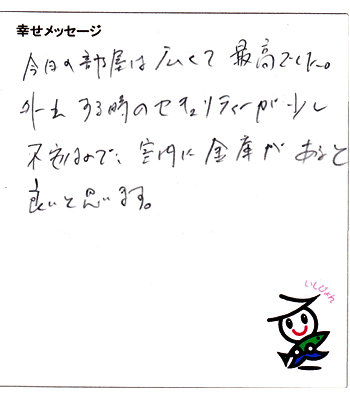 幸せメッセージ
今回の部屋は広くて最高でした。
外出する時のセキュリティーが少し
不安なので、室内に金庫があると
良いと思います。
いしぴょん